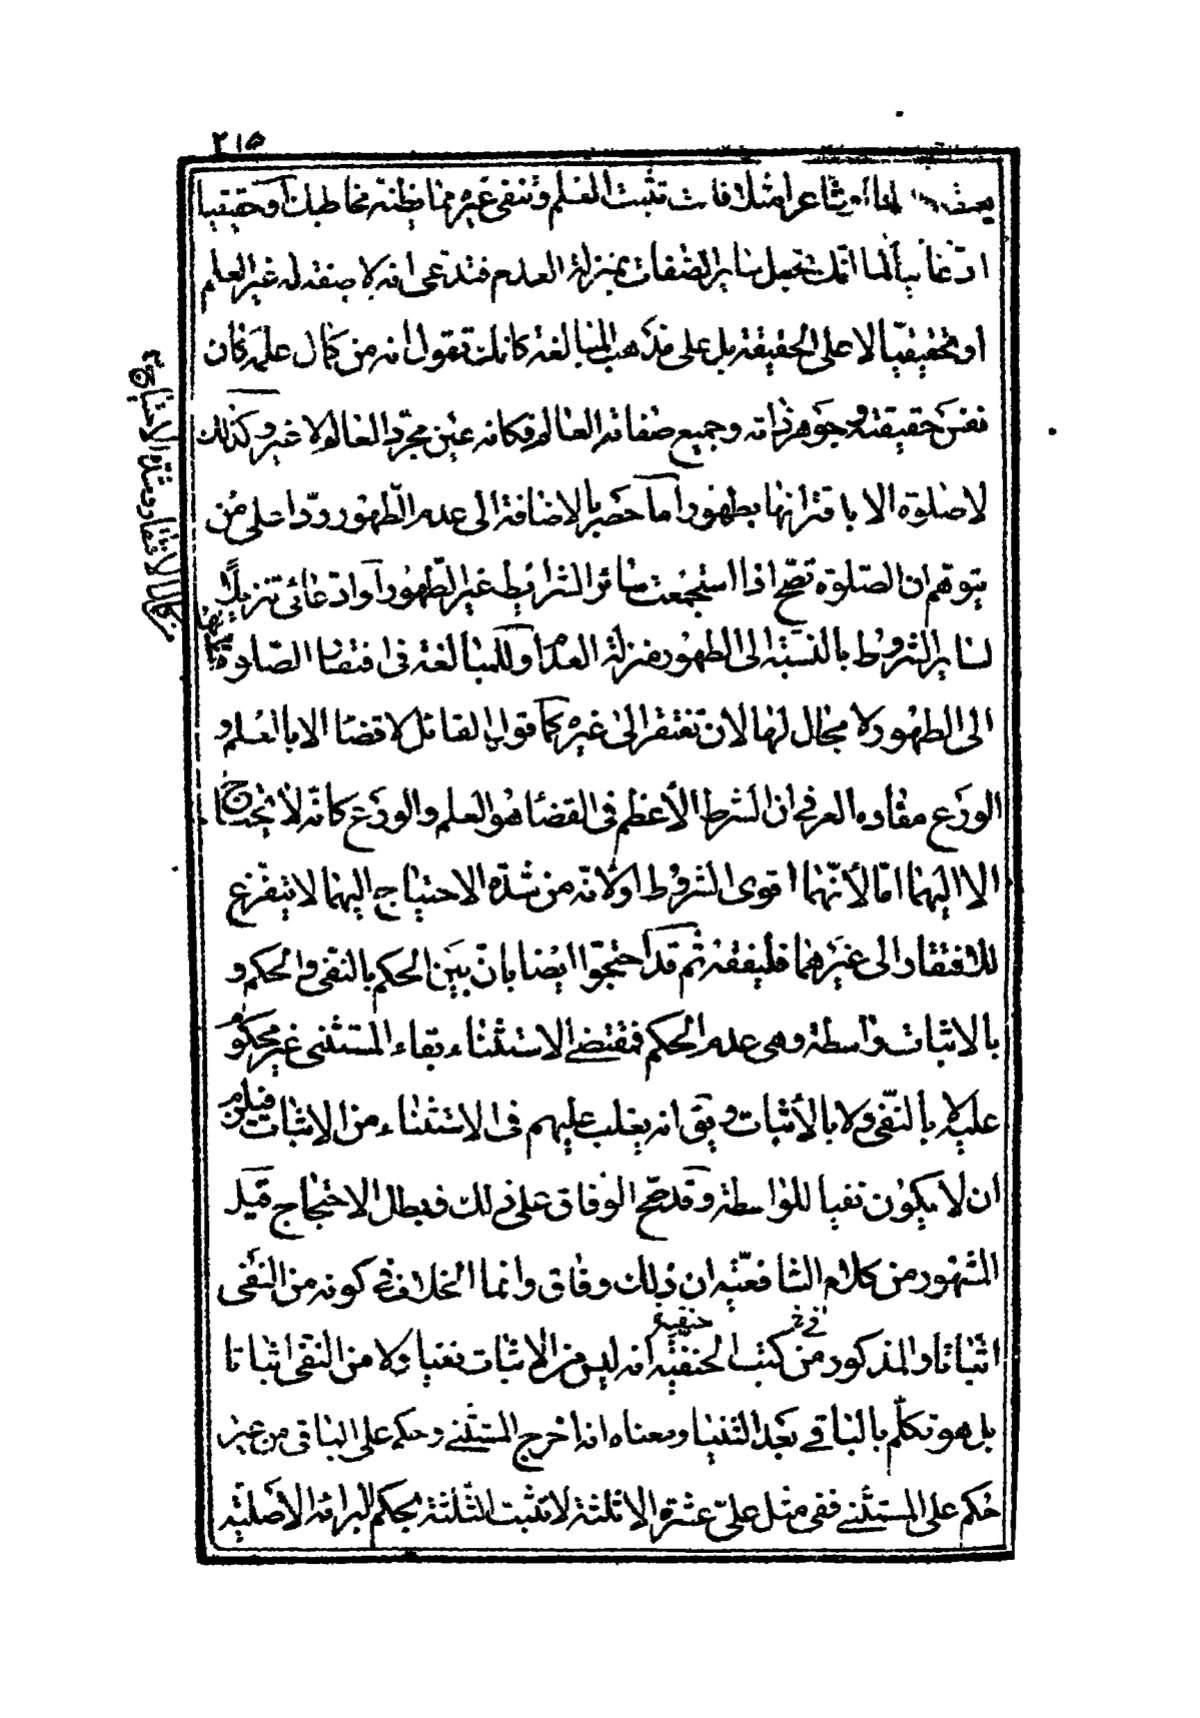 ٢١٥
او شاعرا مثلا فانت تثبت العلم وتنفى غيره مما يظنه مخاطبك او حقيقيا
ادّعائيا كما انّك تجعل سائر الصّفات بمنزلة العدم فتدعى انه لا صفة له غير العلم
او تحقيقيّا لا على الحقيقة بل على مذهب المبالغة كانك تقول انه من كمال علمه كان
نفس حقيقته وجوهر ذاته وجميع صفاته العالم فكانه عين مجرّد العالم لا غير وكذلك
لا صلوة الا باقترانها بطهور اما حصر بالاضافة الى عدم الطّهور وردّا على من
يتوهم ان الصّلوة تصّح اذا استجمعت سائر الشرايط غير الطّهور او ادّعائى تنزيلًا
لساير الشروط بالنسبة الى الطهور منزلة العدم او للمبالغة فى افتقار الصّلوة كانها
الى الطهور لا مجال لها لان تفتقر الى غيره كما قول القائل لا قضا الا بالعلم و
الورع مفاده العرفى ان الشرط الأعظم فى القضا هو العلم والورع كانّه لا يحتاج
الا اليهما امّا لأنّهما اقوى الشروط او لانّه من شدّة الاحتياج اليهما لا يتفرغ
للافتقار الى غيرهما فليفقه ثم قد احتجّوا ايضا بانّ بين الحكم بالنفى والحكم و
بالاثبات واسطة وهى عدم الحكم فمقتضى الاستثناء بقاء المستثنى غير محكوم
عليه لا بالنّفى ولا بالأثبات وبقى انه يغلب عليهم فى الاستثناء من الاثبات فيلزم
ان لا يكون نفيا للواسطة وقد صّح الوفاق على ذلك فبطل الاحتجاج قيل
المشهور من كلام الشافعيّه ان ذلك وفاق وانما الخلاف فى كونه من النفى
اثباتا والمذكور من كتب الحنفيّه انه ليس من الاثبات نفيا ولا من النفى اثباتا
بل هو تكلّم بالباقى بعد الثنيا ومعناه انه اخرج المستثنى وحكم على الباقى من غير
حكم على المستثنى ففى مثل علىّ عشرة الا ثلثة لا تثبت الثلثة بحكم البرائة الأصليّه